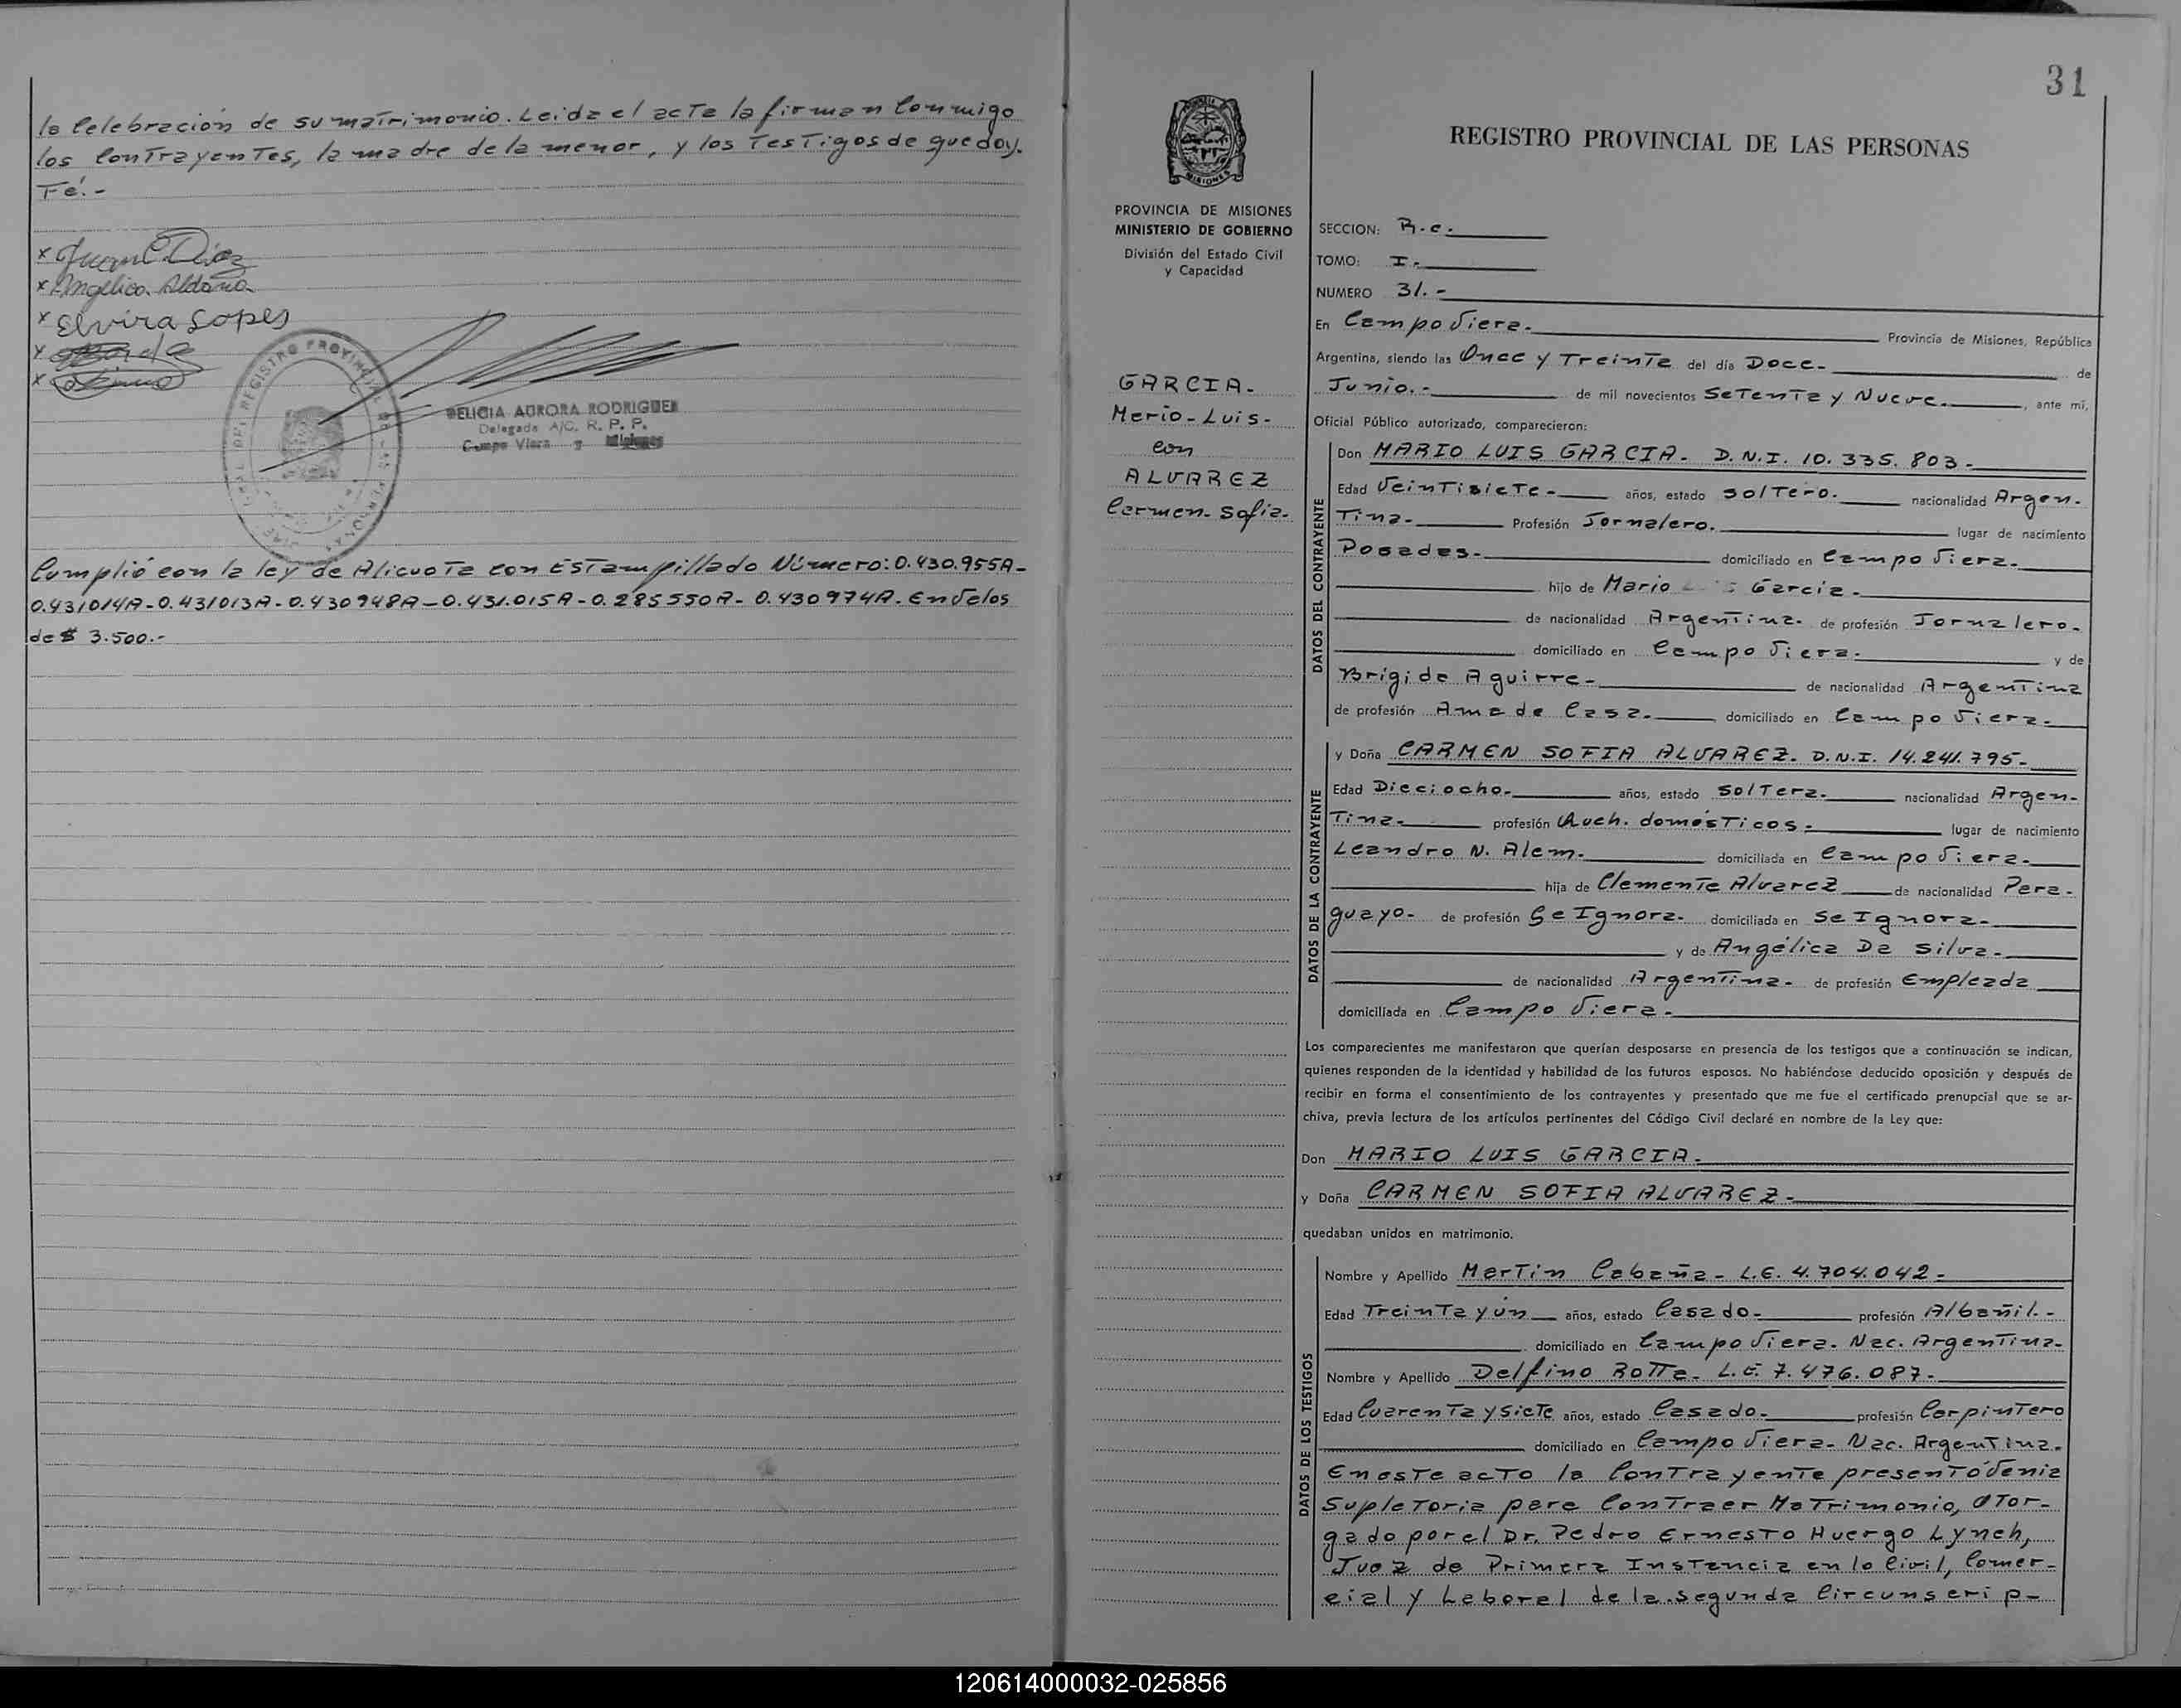 la Celebración de su matrimonio. Leida el acta la firman Conmigo
los Contrayentes, la madre de la menor, y los Testigos de que doy.
Fé.-
x Juan C. Díaz
x Angélica Aldana
x Elvira Lopes
x
x
DELICIA AURORA RODRIGUEZ
Delegada A/C. R. P. P.
Campo Viera - Misiones
Cumplió con la ley de Alicuota con Estampillado Número: 0.430.955A-
0.431014A-0.431013A-0.430948A-0.431.015A-0.285550A-0.430974A. En Velos
de $ 3.500.-
31
REGISTRO PROVINCIAL DE LAS PERSONAS
MISIONES
PROVINCIA DE MISIONES
MINISTERIO DE GOBIERNO
División del Estado Civil
y Capacidad
GARCIA-
Mario-Luis-
con
ALVAREZ
Carmen-Sofia-
SECCION: R.c.
TOMO: I-
NUMERO 31.-
En Campo Viera. Provincia de Misiones, República
Argentina, siendo las Once y Treinta del día Doce. de
Junio.- de mil novecientos Setenta y Nueve. , ante mí,
Oficial Público autorizado, comparecieron:
DATOS DEL CONTRAYENTE
Don MARIO LUIS GARCIA. D.N.I. 10.335.803-
Edad Veintisiete- años, estado solTero. nacionalidad Argen-
Tina- Profesión Jornalero. lugar de nacimiento
Posadas- domiciliado en Campo Viera.
hijo de Mario Garcia-
de nacionalidad Argentina- de profesión Jornalero-
domiciliado en Campo Viera- y de
Brígida Aguirre- de nacionalidad Argentina
de profesión Ama de Casa. domiciliado en Campo Viera-
DATOS DE LA CONTRAYENTE
y Doña CARMEN SOFIA ALVAREZ. D.N.I. 14.241.795-
Edad Dieciocho- años, estado SolTera. nacionalidad Argen-
Tina- profesión Queh. domésTicos- lugar de nacimiento
Leandro N. Alem. domiciliada en Campo Viera-
hija de Clemente Alvarez de nacionalidad Para-
guayo- de profesión Se Ignora- domiciliada en Se Ignora-
y de Angélica Da Silva-
de nacionalidad Argentina- de profesión Empleada
domiciliada en Campo Viera-
Los comparecientes me manifestaron que querían desposarse en presencia de los testigos que a continuación se indican,
quienes responden de la identidad y habilidad de los futuros esposos. No habiéndose deducido oposición y después de
recibir en forma el consentimiento de los contrayentes y presentado que me fue el certificado prenupcial que se ar-
chiva, previa lectura de los artículos pertinentes del Código Civil declaré en nombre de la Ley que:
Don MARIO LUIS GARCIA.
y Doña CARMEN SOFIA ALVAREZ-
quedaban unidos en matrimonio.
DATOS DE LOS TESTIGOS
Nombre y Apellido Martin Cabaña- L.E. 4.704.042-
Edad Treinta y ún años, estado Casado- profesión Albañil.-
domiciliado en Campo Viera. Nac. Argentina-
Nombre y Apellido Delfino Rotta- L.E. 7.476.087-
Edad Cuarenta y siete años, estado Casado- profesión Carpintero
domiciliado en Campo Viera- Nac. Argentina.
En este acto la Contrayente presentó Venia
Supletoria para Contraer Matrimonio, Otor-
gado por el Dr. Pedro Ernesto Huergo Lynch,
Juez de Primera Instancia en lo Civil, Comer-
cial y Laboral de la segunda Circunscrip-
120614000032-025856